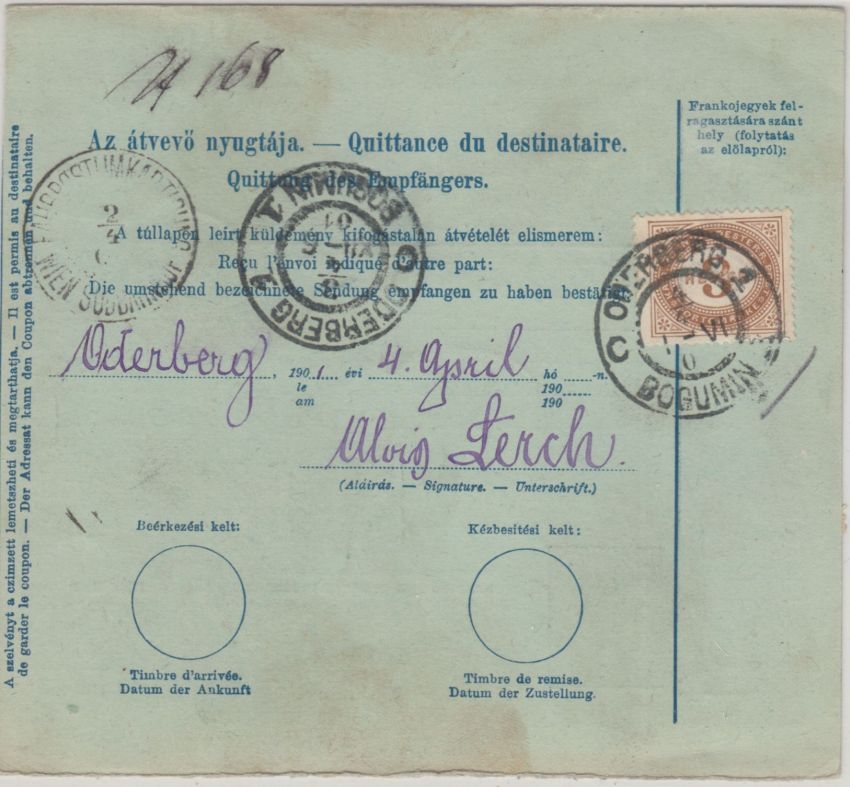 168
Frankojegyek fel-
ragasztására szánt
hely (folytatás
az előlapról):
Az átvevő nyugtája. — Quittance du destinataire.
Quittung des Empfängers.
A túllapon leírt küldemény kifogástalan átvételét elismerem:
Reçu l'envoi indiqué d'autre part:
Die umstehend bezeichnete Sendung empfangen zu haben bestätigt
Oderberg, 1901. évi 4. April hó -n.
le 190
am 190
Alois Lerch.
(Aláirás. — Signature. — Unterschrift.)
Beérkezési kelt:
Kézbesitési kelt:
Timbre d'arrivée.
Datum der Ankunft
Timbre de remise.
Datum der Zustellung.
A szelvényt a czimzett lemetszheti és megtarthatja. — Il est permis au destinataire
de garder le coupon. — Der Adressat kann den Coupon abtrennen und behalten.
FAHRPOSTUMKARTIRUNG
2/4
WIEN SÜDBAHNHOF
ODERBERG 2
BOGUMIN 1
ODERBERG 2
BOGUMIN